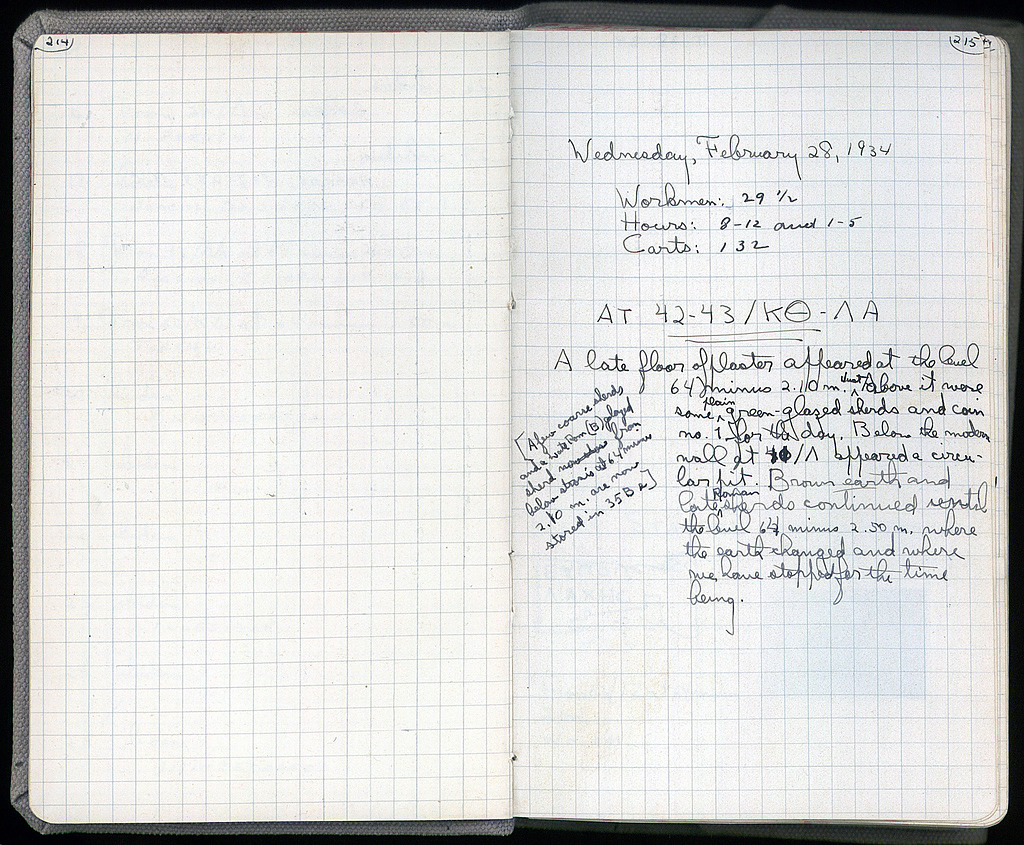 214
215
Wednesday, February 28, 1934
Workmen: 29 1/2
Hours: 8-12 and 1-5
Carts: 132
AT 42-43/ΚΘ-ΛΑ
A late floor of plaster appeared at the level
64 minus 2.10 m. Just above it were
some plain green-glazed sherds and coin
no. 1 for the day. Below the modern
wall at /Λ appeared a circu-
lar pit. Brown earth and
late Roman sherds continued until
the level 64 minus 2.50 m, where
the earth changed and where
we have stopped for the time
being.
[A few coarse sherds
and a late Rom (B) glazed
sherd from
below at 64 minus
2.10 m. are now
stored in 35 B]